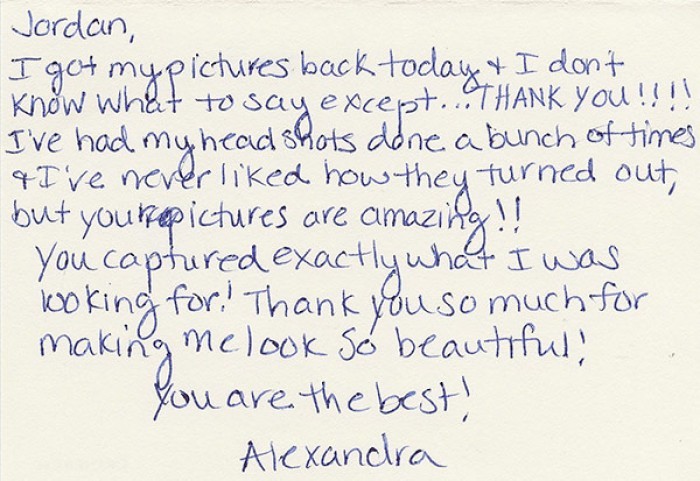 Jordan,
I got my pictures back today & I don't
know what to say except...THANK YOU!!!!
I've had my headshots done a bunch of times
& I've never liked how they turned out,
but your pictures are amazing!!
You captured exactly what I was
looking for! Thank you so much for
making me look so beautiful!
You are the best!
Alexandra